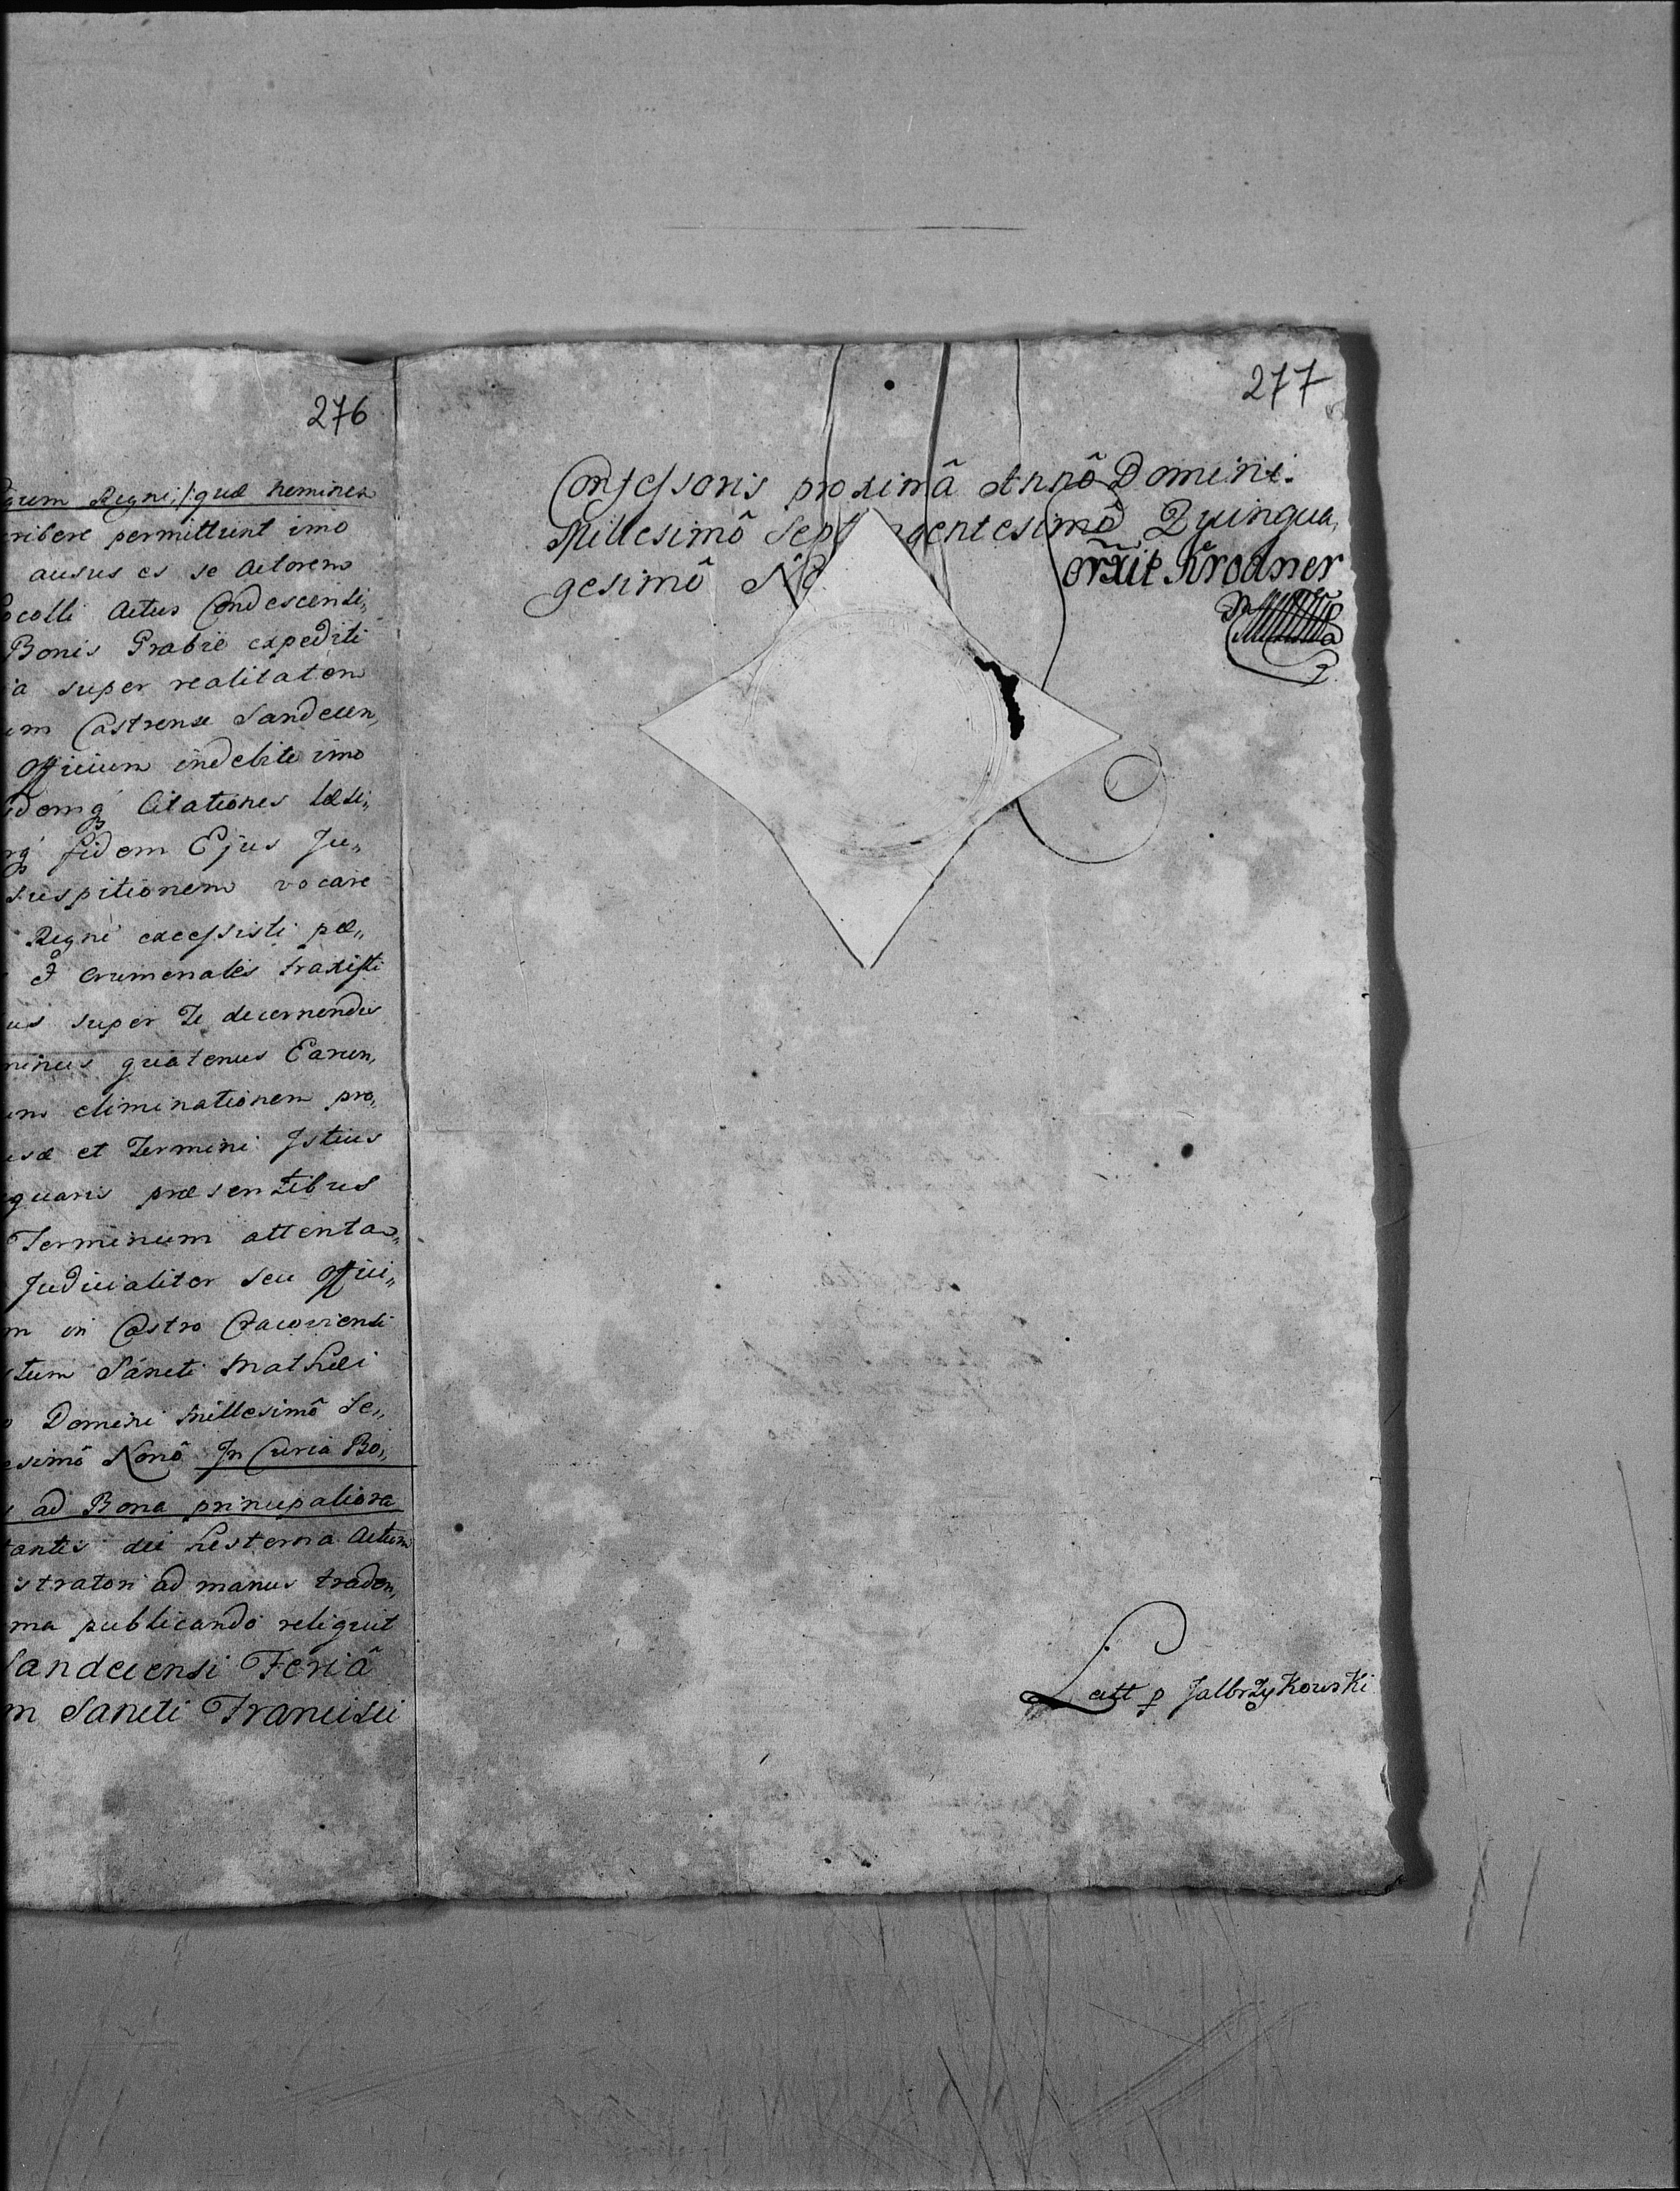 276
Regni; /: quæ neminem
permittunt imo
ausus es se Actorem
Actus Condescensi„
Bonis Grabie expediti
super realitatem
Castrense Sandecen„
Officium indebite imo
Citationes læsi„
fidem Ejus Ju„
suspitionem vocare
Regni excessisti pœ„
criminales traxisti
super Te decernendis
quatenus Earun„
eliminationem pro„
et Termini Istius
præsentibus
Terminum attenta„
Judicialiter seu Offici„
in Castro Cracoviensi
Sancti Mathæi
Domini Millesimô Se„
Nonô In Curia Bo„
ad Bona principaliora
die hesterna Actum
ad manus traden„
publicando reliquit
Feriâ
Sancti Francisci
277
Confessoris proximâ Annô Domini.
Millesimô Sept gentesimô Quinqua„
gesimô No
orãxit Krodner
Lectt p Jalbrzykowski